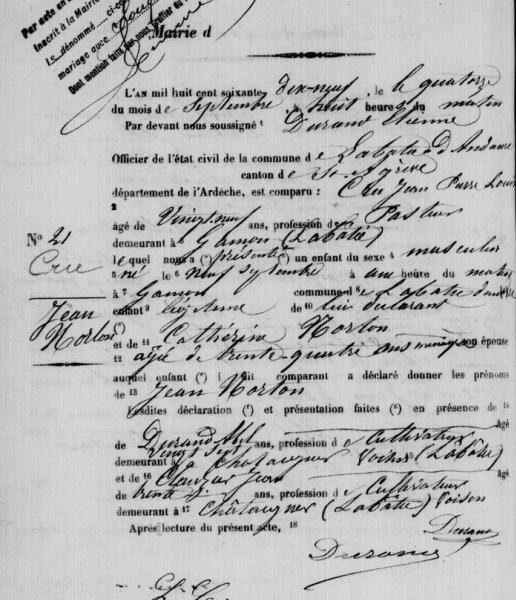 Par acte en
Inscrit à la Mairie
Le dénommé ci-c
mariage avec
Dont mention faite par nous
Mairie d
L'AN mil huit cent soixante dix-neuf, le quatorze
du mois de Septembre à huit heures du matin
Par devant nous soussigné Durand Etienne
Officier de l'état civil de la commune de Labatie d'Andaure
canton de St Agrève
département de l'Ardèche, est comparu : Cru Jean Pierre Louis
2
âgé de Vingt neuf ans, profession de Pasteur
demeurant à Gamon (Labatie)
lequel nous a (*) présenté un enfant du sexe masculin
5 né le 6 neuf septembre à une heure du matin
à 7 Gamon commune de Labatie d'Andaure
enfant 9 légitime de 10 lui déclarant
(*) et de 11 Cathérine Norton
12 agée de trente-quatre ans ménagère son épouse
auquel enfant (*) il comparant a déclaré donner les prénoms
de 13 Jean Norton
Lesdites déclaration (*) et présentation faites (*) en présence de 14
âgé
de Durand Abel
Vingt sept ans, profession de Cultivateur
demeurant à Chataigner Voisin (Labatie)
et de 16 Jean âgé
de trente ans, profession de Cultivateur
demeurant à 17 Châtaigner (Labatie) Voisin
Après lecture du présent acte, 18
Durand
Durand
N° 21
Cru
Jean
Norton